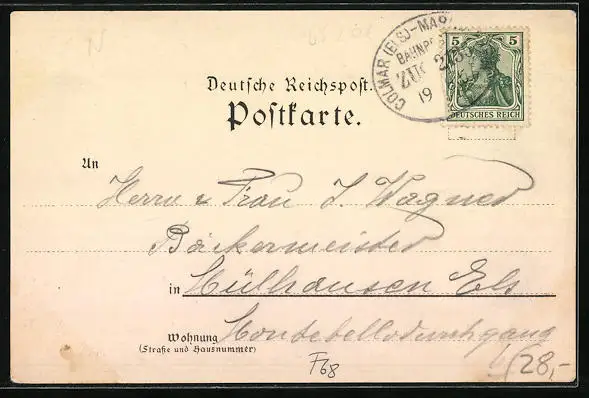 COLMAR (ELS)-MAR
BAHNPO
ZUG 275
19
5 5
DEUTSCHES REICH
Deutsche Reichspost.
Postkarte.
An
Herrn & Frau J. Wagner
Bäckermeister
in Mülhausen Els
Wohnung Montebellodurchgang
(Straße und Hausnummer)
F68
28,-